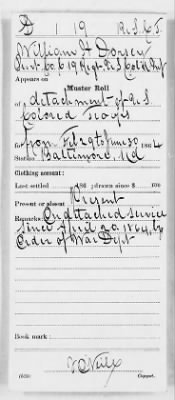 D | 19 | U.S.C.T.
William H Dorsey
Co. G, 19 Reg't U.S. Col'd Inf
Appears on
Muster Roll
of a detachment of U.S.
Colored Troops
for from Feb 29 to June 30, 1864
Station Baltimore, Md
Clothing account:
Last settled , 186 ; drawn since $ 100
Present or absent Present
Remarks: On detached service
since April 20, 1864, by
Order of War Dept
Book mark:
(858)
Copyist.